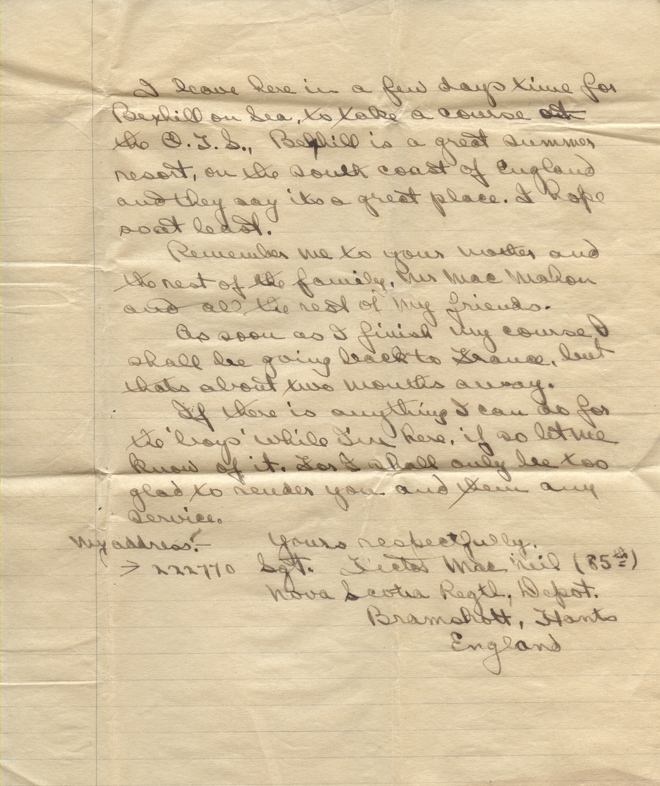 I leave here in a few days time for
Bexhill on Sea, to take a course at
the O.T.S., Bexhill is a great summer
resort, on the south coast of England
and they say its a great place. I hope
so at least.
Remember me to your mother and
the rest of the family, Mr Mac Mahon
and all the rest of my friends.
As soon as I finish my course I
shall be going back to France, but
thats about two months away.
If there is anything I can do for
the 'boys' while I'm here, if so let me
know of it. For I shall only be too
glad to render you and them any
service.
Yours respectfully.
My address:-
→ 222770 Sgt. Mac Neil (85th)
Nova Scotia Regtl, Depot.
Bramshott, Hants
England